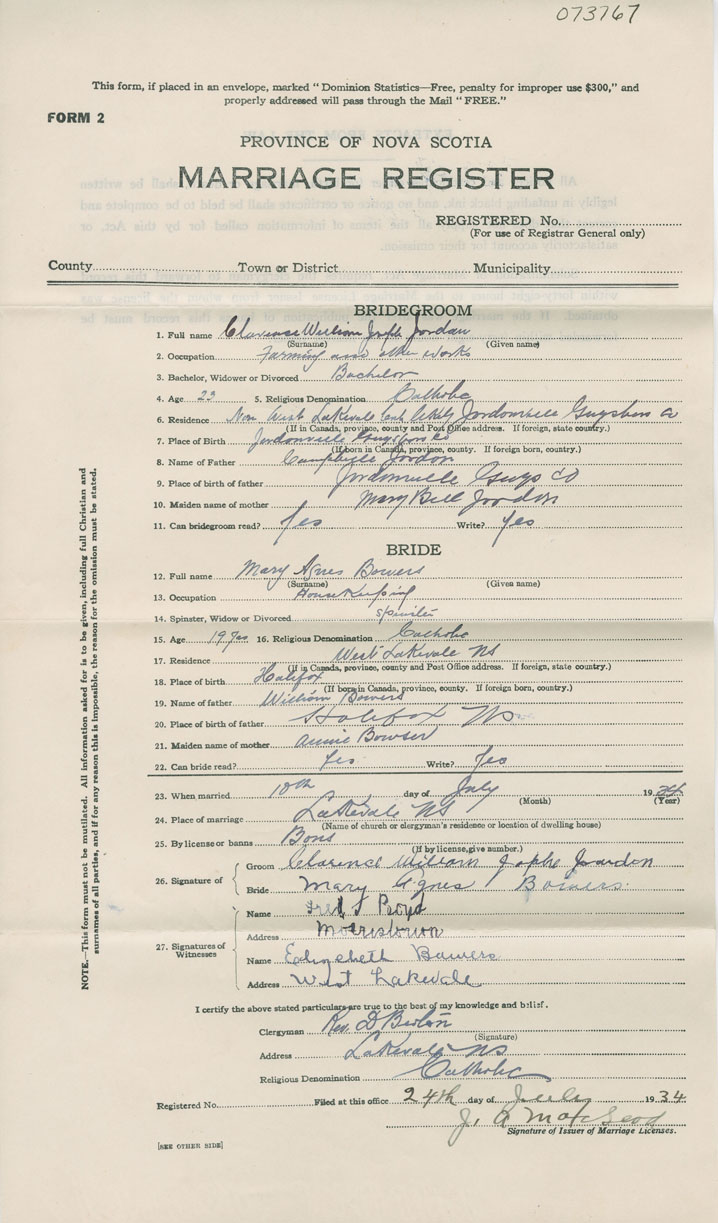 073767
This form, if placed in an envelope, marked "Dominion Statistics—Free, penalty for improper use $300," and
properly addressed will pass through the Mail "FREE."
FORM 2
PROVINCE OF NOVA SCOTIA
MARRIAGE REGISTER
REGISTERED No.
(For use of Registrar General only)
County Town or District Municipality
BRIDEGROOM
1. Full name Clarence William Joseph Jordan
(Surname) (Given name)
2. Occupation Farming and other works
3. Bachelor, Widower or Divorced Bachelor
4. Age 23 5. Religious Denomination Catholic
6. Residence Now West Lakevale Jordonville Guysboro Co
(If in Canada, province, county and Post Office address. If foreign, state country.)
7. Place of Birth Jordonville Guysboro Co
(If born in Canada, province, county. If foreign born, country.)
8. Name of Father Campbell Jordon
9. Place of birth of father Jordonville Guys Co
10. Maiden name of mother Mary Bell Jordon
11. Can bridegroom read? Yes Write? Yes
BRIDE
12. Full name Mary Agnes Bowers
(Surname) (Given name)
13. Occupation HouseKeeping
14. Spinster, Widow or Divorced Spinster
15. Age 19 yrs 16. Religious Denomination Catholic
17. Residence West Lakevale NS
(If in Canada, province, county and Post Office address. If foreign, state country.)
18. Place of birth Halifax
(If born in Canada, province, county. If foreign born, country.)
19. Name of father William Bowers
20. Place of birth of father Halifax NS
21. Maiden name of mother Annie Bowser
22. Can bride read? Yes Write? Yes
23. When married 10th day of July 1934
(Month) (Year)
24. Place of marriage Lakevale NS
(Name of church or clergyman's residence or location of dwelling house)
25. By license or banns Bans
(If by license, give number.)
26. Signature of
Groom Clarence William Jophe Jordon
Bride Mary Agnes Bowers
27. Signatures of Witnesses
Name Fred J Boyd
Address Morristown
Name Elizebeth Bowers
Address West Lakevale
I certify the above stated particulars are true to the best of my knowledge and belief.
Clergyman Rev. D
(Signature)
Address Lakevale NS
Religious Denomination Catholic
Registered No. Filed at this office 24th day of July 1934
J. A. MacLeod
Signature of Issuer of Marriage Licenses.
[SEE OTHER SIDE]
NOTE.—This form must not be mutilated. All information asked for is to be given, including full Christian and
surnames of all parties, and if for any reason this is impossible, the reason for the omission must be stated.